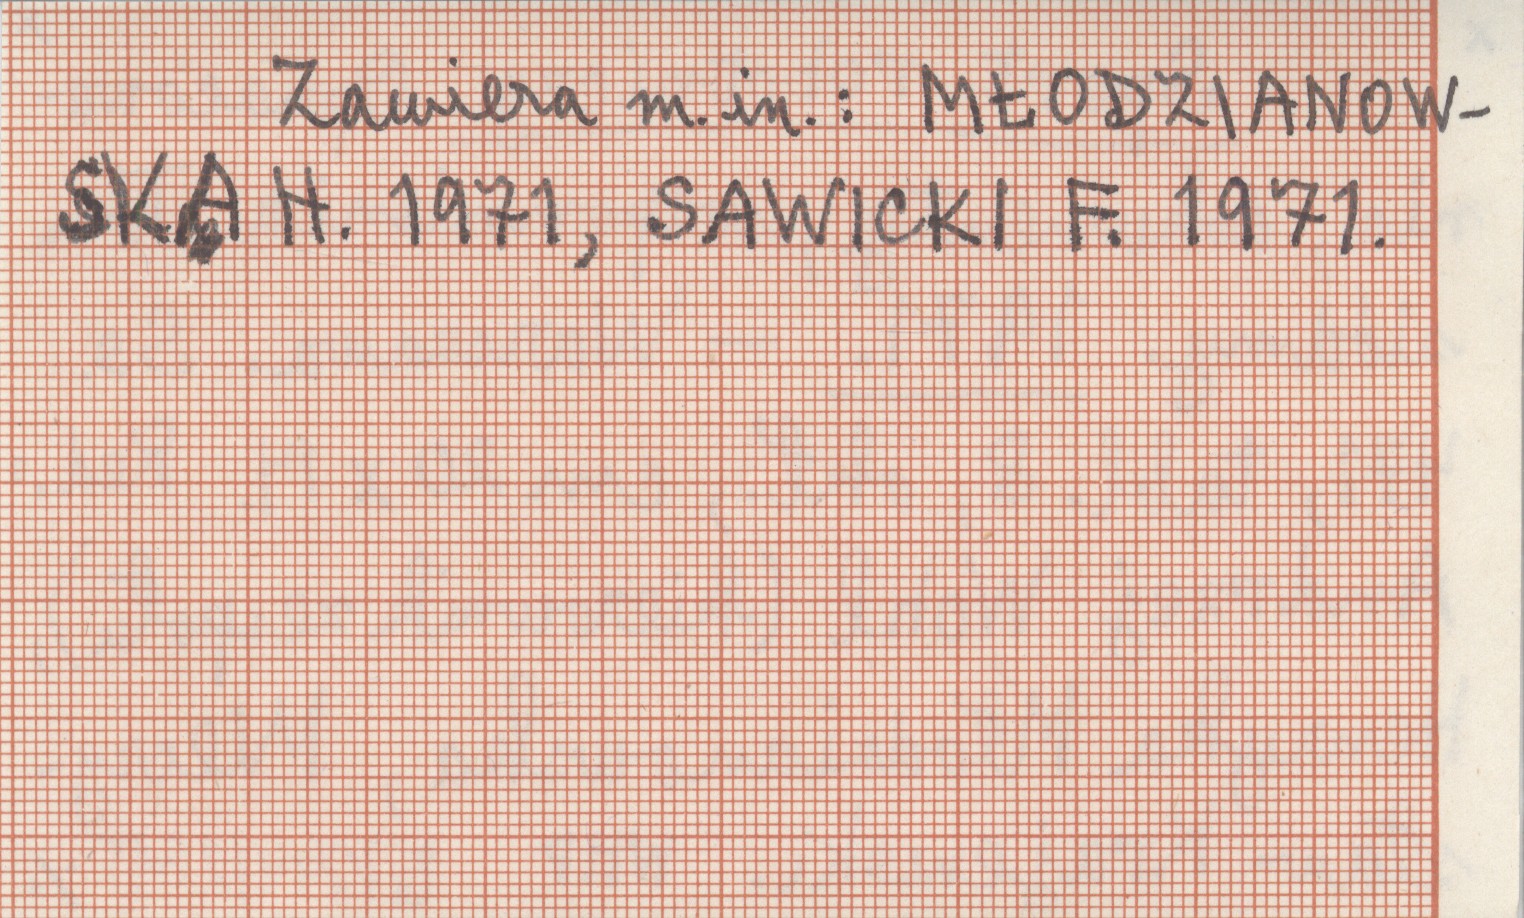 Zawiera m.in.: MŁODZIANOW-
SKA H. 1971, SAWICKI F. 1971.